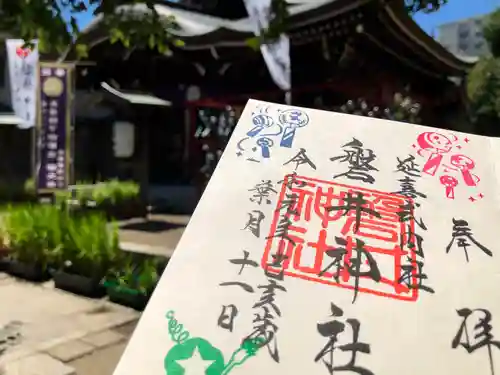 奉拝
延喜式内社
磐井神社
磐井
神社
令和元年己亥歳
葉月十一日